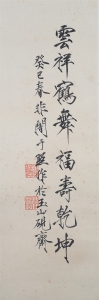 雲祥鶴舞福壽乾坤
癸巳春非闇于照作於玉山硯齋